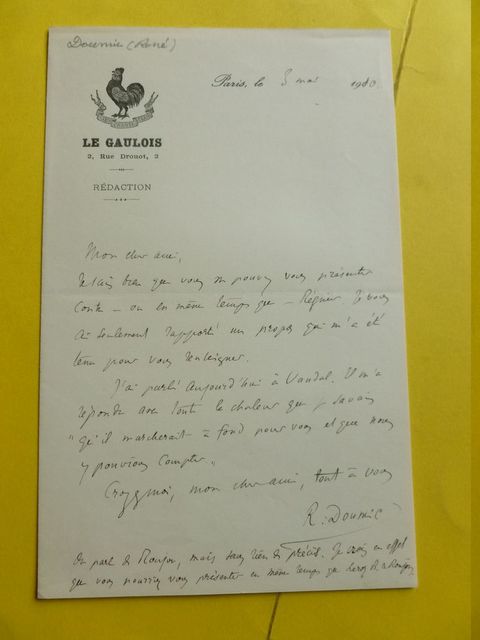 Doumic (René)
Paris, le 8 mai 1910
LE GAULOIS
2, Rue Drouot, 2
RÉDACTION
Mon cher ami,
Je sais bien que vous ne pouvez vous présenter
contre – ou en même temps que – Régnier. Je vous
ai seulement rapporté un propos qui m'a été
tenu pour vous renseigner.
J'ai parlé aujourd'hui à Vandal. Il m'a
répondu avec toute la chaleur que je savais
"qu'il marcherait à fond pour vous et que nous
y pouvions compter"
Croyez moi, mon cher ami, tout à vous
R. Doumic
On parle de Roujon, mais sans rien de précis. Je crois en effet
que vous pourriez vous présenter en même temps que Leroy B. & Roujon.